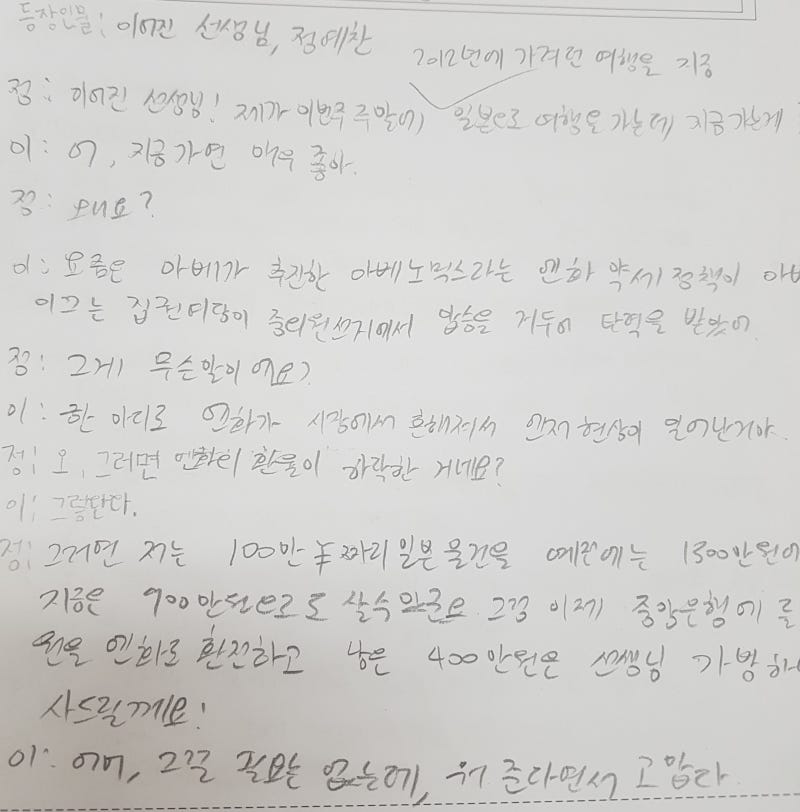 등장인물: 이어진 선생님, 정예찬
2012년에 가려던 여행을 지금
정: 이어진 선생님! 제가 이번주 주말에, 일본으로 여행을 가는데 지금가는게
이: 어, 지금가면 매우 좋아.
정: 왜요?
이: 요즘은 아베가 추진한 아베노믹스라는 엔화 약세 정책이 아베
이끄는 집권여당이 중의원선거에서 압승을 거두어 탄력을 받았어.
정: 그게 무슨말이에요?
이: 한 마디로 엔화가 시장에서 흔해져서 엔저 현상이 일어난거야.
정: 오, 그러면 엔화의 환율이 하락한 거네요?
이: 그렇단다.
정: 그러면 저는 100만 ¥ 짜리 일본 물건을 예전에는 1300만원에
지금은 900만원으로도 살수 있군요 그럼 이제 중앙은행에
원을 엔화로 환전하고 남은 400만원은 선생님 가방하나
사드릴께요!
이: 어머, 그럴 필요는 없는데, 뭐 준다면서 고맙다